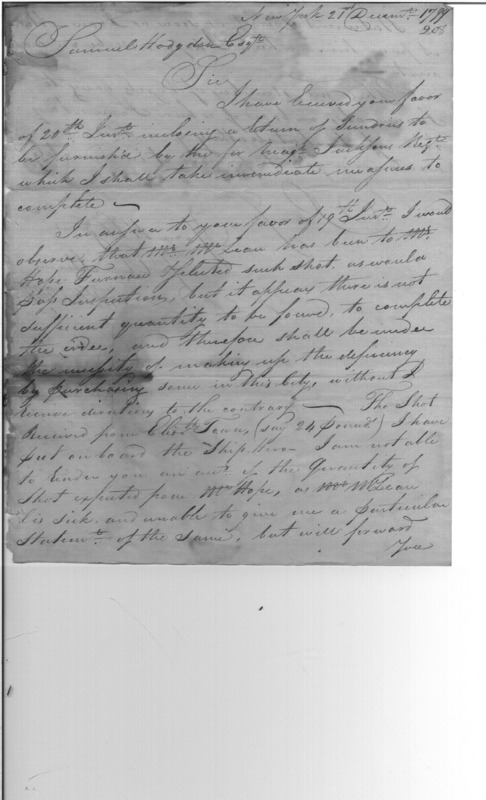 New York 21st Decemr 1799
208
Samuel Hodgdon Esqr
Sir
I have received your favor
of 20th Instt inclosing a return of Sundries to
be furnished by this for Jacksons Regt
which I shall take immediate measures to
complete —
In answer to your favor of 19th Instt I would
observe, that Mr McLean has been to Mt
Hope Furnace Selected such shot, as would
pass Inspection, but it appears there is not
sufficient quantity to be found, to complete
the order, and therefore shall be under
the necessity of making up the deficiency
by purchasing some in this City, without I
receive directions to the contrary — The Shot
Received from Elizth Town, (say 24 Pound) I have
put on board the Ship.
I am not able
to render you an acct of the Quantity of
Shot expected from Mt Hope, as Mr McLean
is sick and unable to give me a Particular
Statemt of the Same, but will forward
You